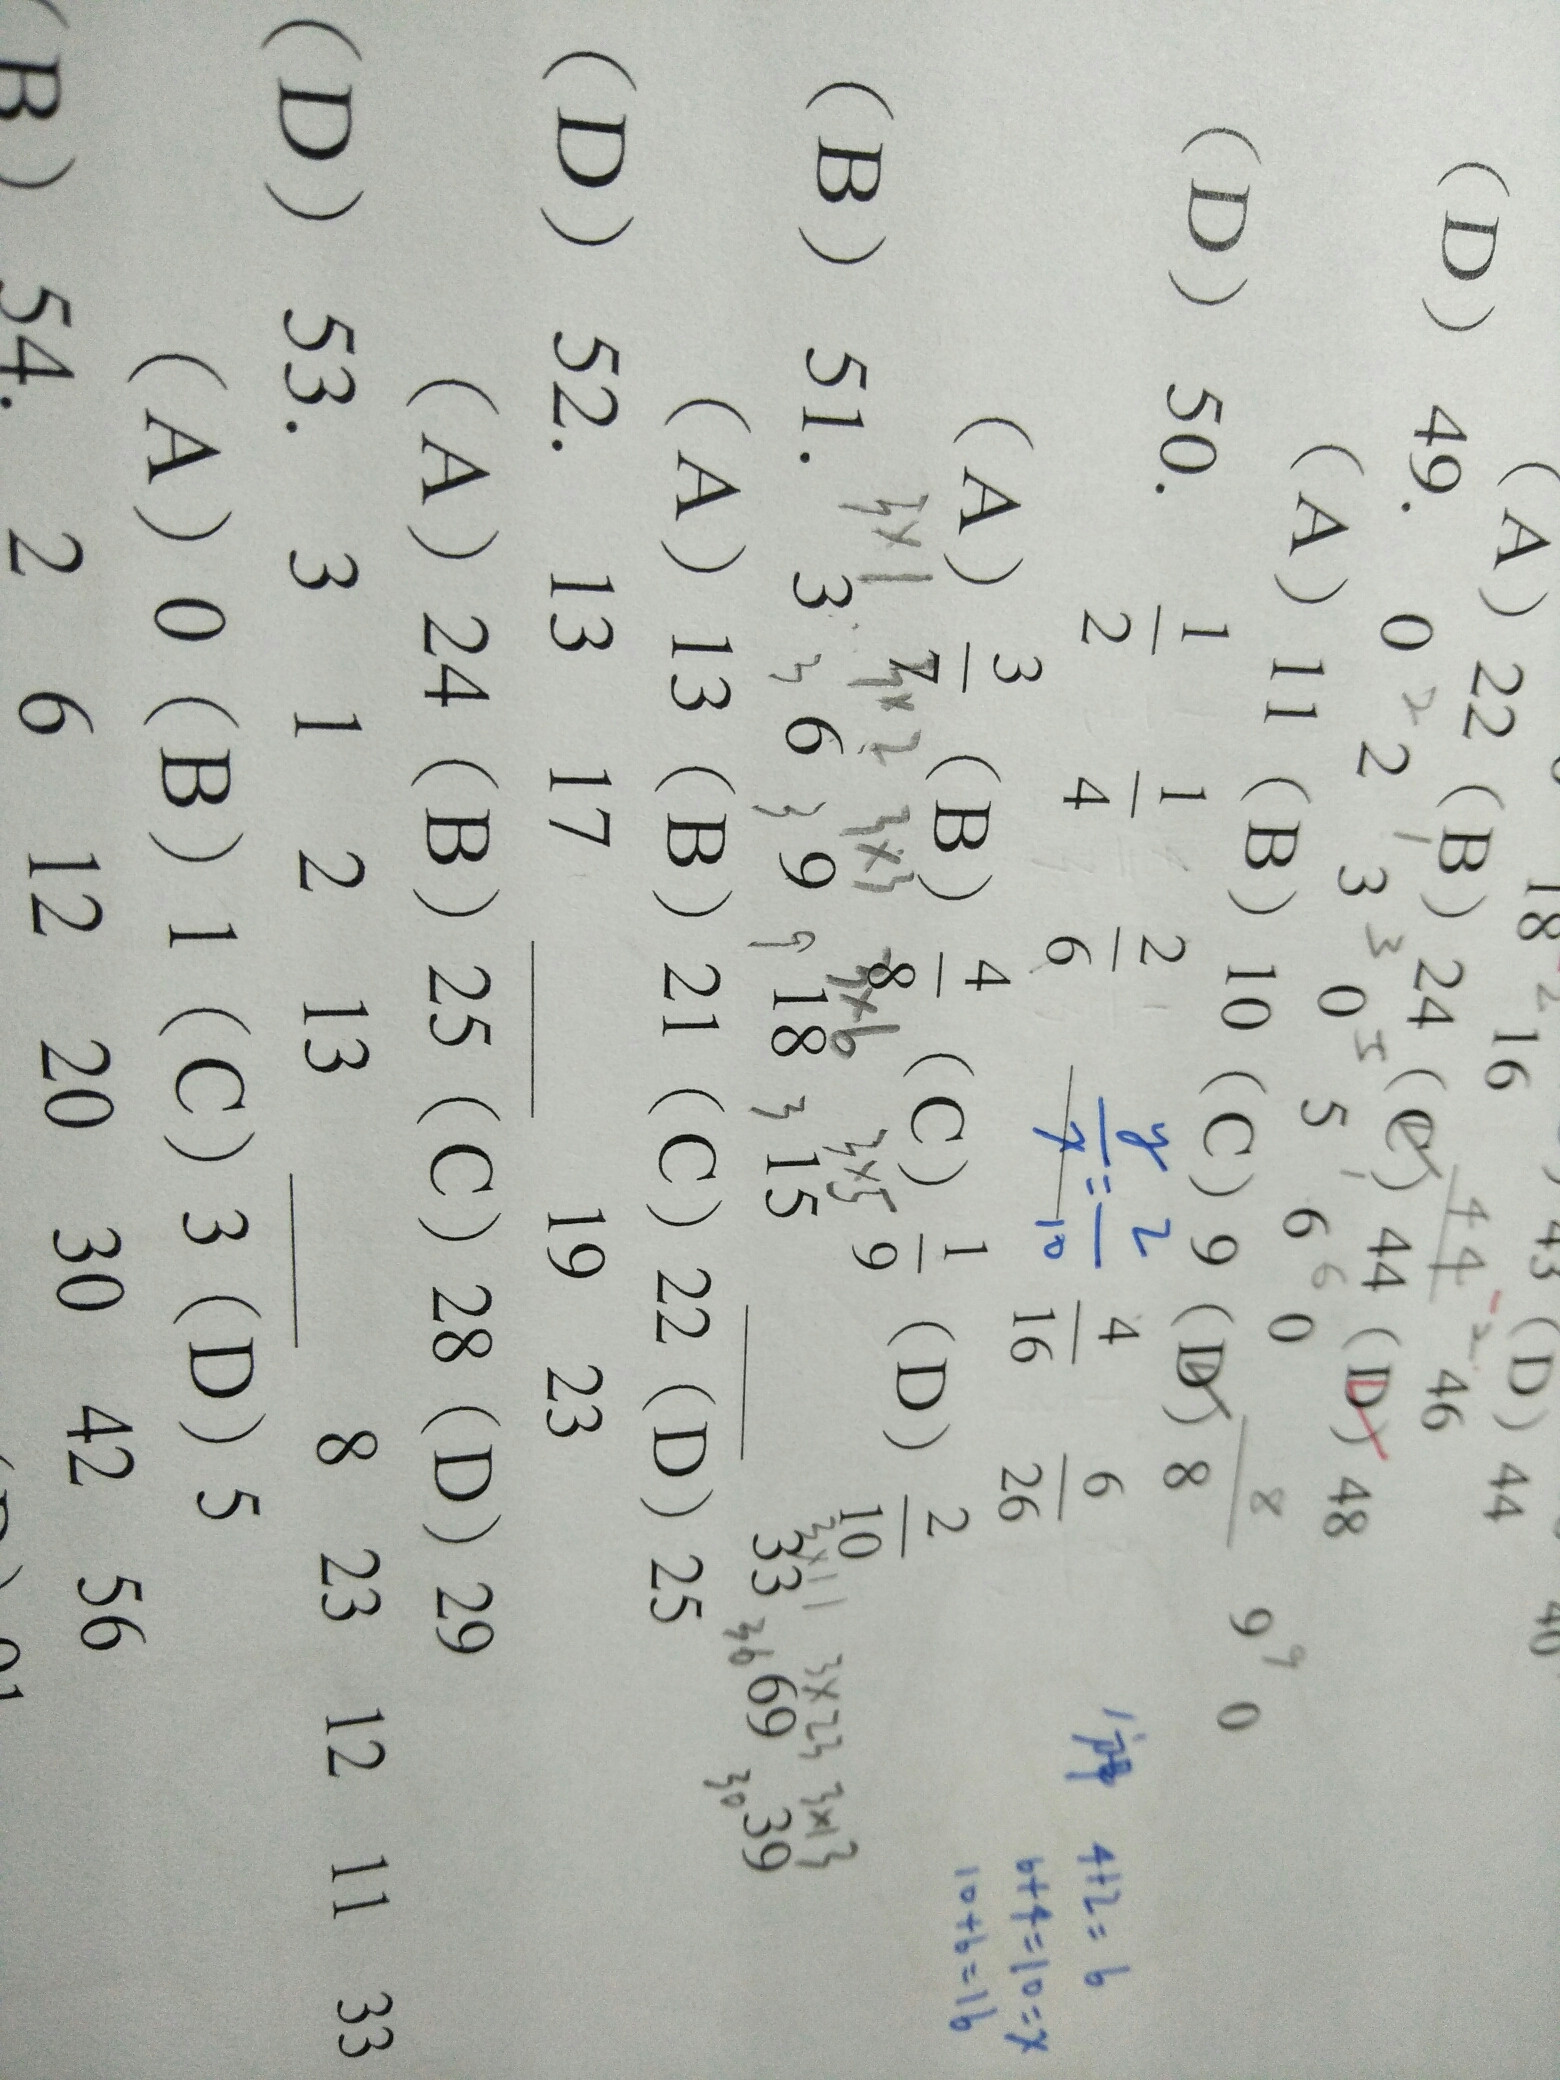 18 16 43 40
(A) 22 (B) 24 (C) 44 (D) 44
46
(D) 49. 0 2 3 0 5 6 0 8 9 0
(A) 11 (B) 10 (C) 9 (D) 8
48
(D) 50. 1/2 1/4 2/6 y/x = 2/10 4/16 6/26
4+2=6
6+4=10=x
10+6=16
(A) 3/7 (B) 4/8 (C) 1/9 (D) 2/10
3x1 3x2 3x3 3x6 3x5 3x11 3x23 3x13
(B) 51. 3 6 9 18 15 33 69 39
3 3 9 3 36 30
(A) 13 (B) 21 (C) 22 (D) 25
(D) 52. 13 17 19 23
(A) 24 (B) 25 (C) 28 (D) 29
(D) 53. 3 1 2 13 8 23 12 11 33
(A) 0 (B) 1 (C) 3 (D) 5
(B) 54. 2 6 12 20 30 42 56